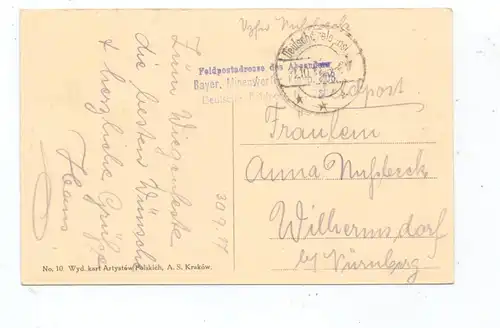 Feldpostadresse des Absenders
Bayer. Minenwerfer
Zum Wiegenfeste
die besten Wünsche
& herzliche Grüße
Hans
30.9.17
Feldpost
Fräulein
Anna Nußbeck
Wilhermsdorf
bei Nürnberg
No. 10. Wyd. kart Artystów Polskich, A. S. Kraków.